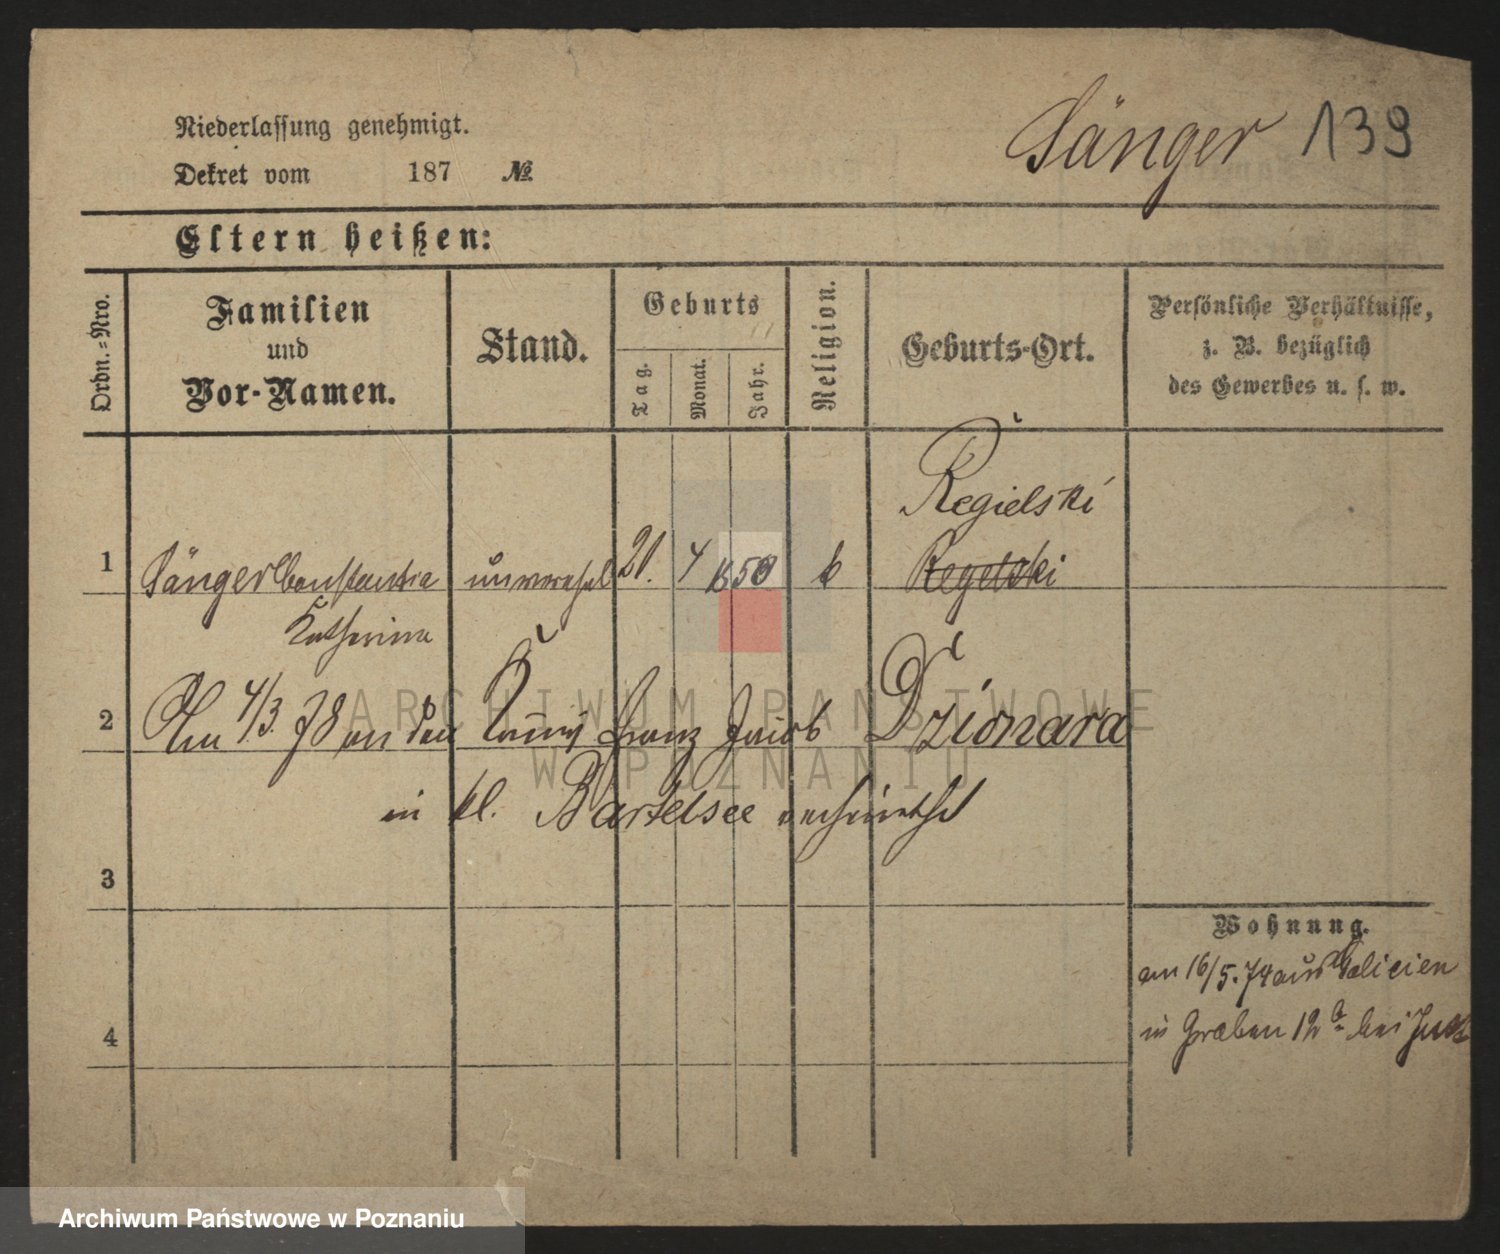 Sänger 139
Niederlassung genehmigt.
Dekret vom 187 №
Eltern heißen:
Ordn.-Nro.
Familien
und
Vor-Namen.
Stand.
Geburts
Tag.
Monat.
Jahr.
Religion.
Geburts-Ort.
Persönliche Verhältnisse,
z. B. bezüglich
des Gewerbes u. s. w.
Regielski
1 Sänger Constantia unverehel 21. 4 1850 k Regelski
Katherina
2 Am 4/3. 78 an den Franz Jacob Dzionara
in kl. Bartelsee verheirathet
3
Wohnung.
am 16/5. 74 aus Galicien
in Graben 12a bei
4
ARCHIWUM PAŃSTWOWE
W POZNANIU
Archiwum Państwowe w Poznaniu